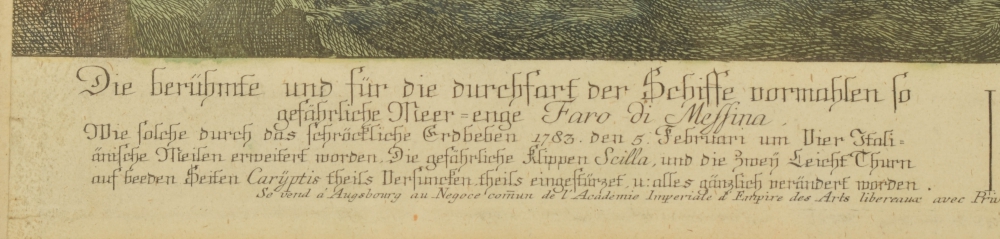 Die berühmte und für die durchfart der Schiffe vormahlen so
gefährliche Meer=enge Faro di Messina.
Wie solche durch das schröckliche Erdbeben 1783. den 5. Februari um Vier Itali=
änische Meilen erweitert worden. Die gefährliche Klippen Scilla, und die zweÿ Leicht Thurn
auf beeden Seiten Carÿptis theils Versuncken theils eingestürzet, u: alles gänzlich verändert worden.
Se vend à Augsbourg au Negoce com̄un de l'Academie Imperiale d'Empire des Arts libereaux avec